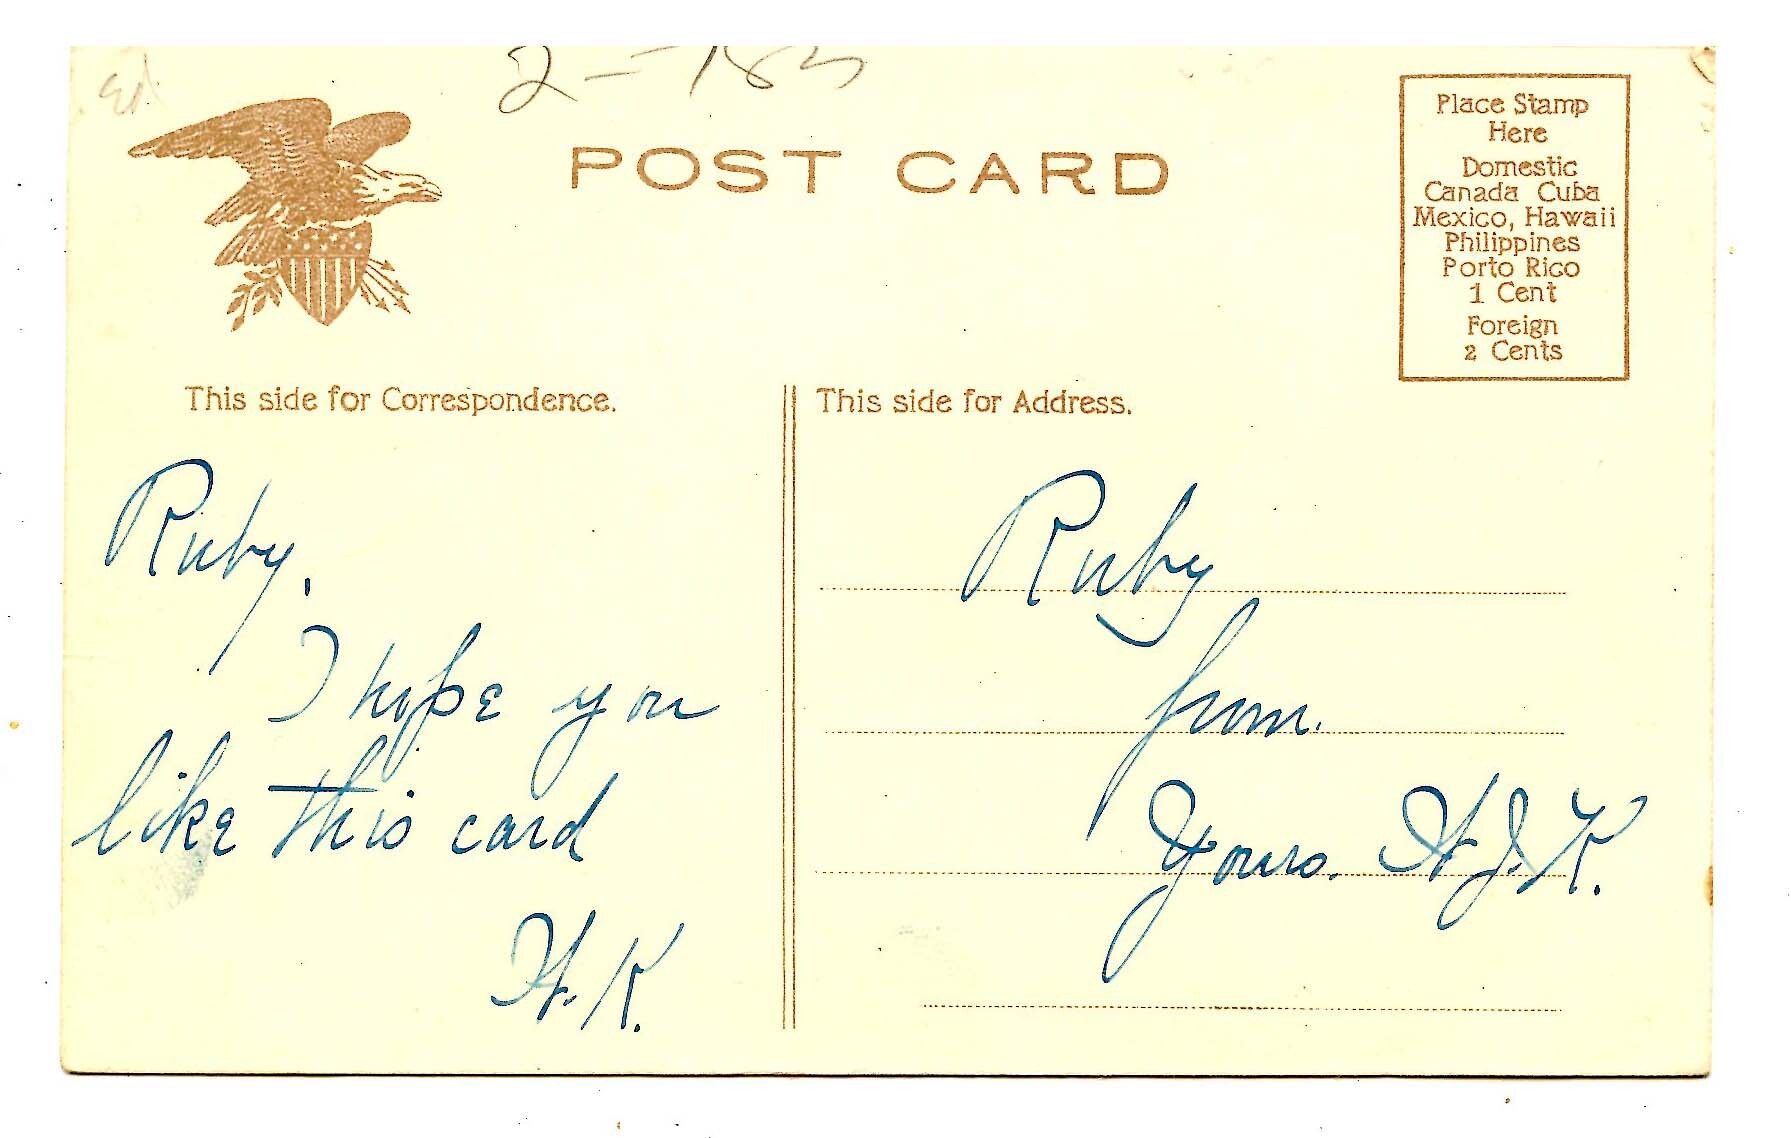 2 - 183
POST CARD
Place Stamp
Here
Domestic
Canada Cuba
Mexico, Hawaii
Philippines
Porto Rico
1 Cent
Foreign
2 Cents
This side for Correspondence.
This side for Address.
Ruby,
I hope you
like this card
H. K.
Ruby
from.
Yours. H. J. K.